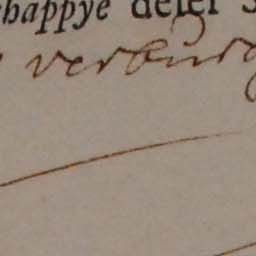 chappye deser
verburg